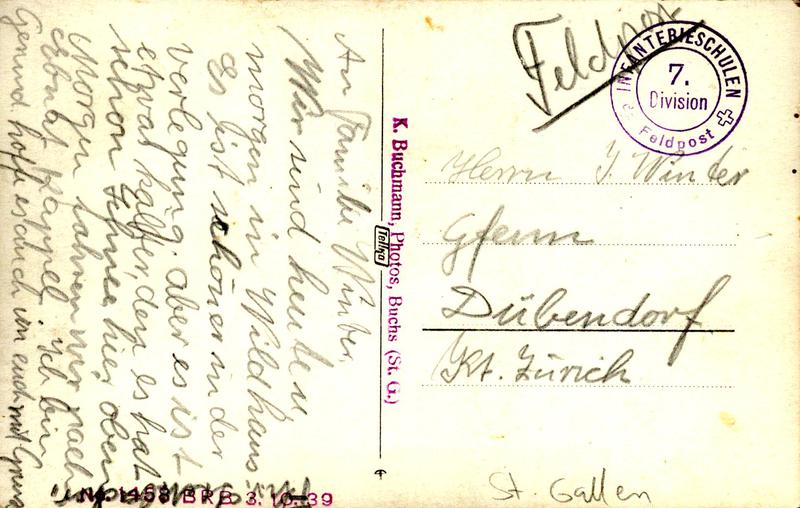 An Familie Winter.
Wir sind heute u
morgen in Wildhaus.
Es ist schöner in der
verlegung. aber es ist
etwas kälter, den es hat
schon Schnee hier oben
Morgen fahren wir nach
Ebnat Kappel. Ich bin
Gesund hoffe es auch von euch mit Gruss
No 1458 BRB 3.10.39
K. Buchmann, Photos, Buchs (St. G.)
Tellko
Feldpost
INFANTERIESCHULEN
7.
Division
Feldpost
Herrn J. Winter
Gfenn
Dübendorf
Kt. Zürich
St. Gallen